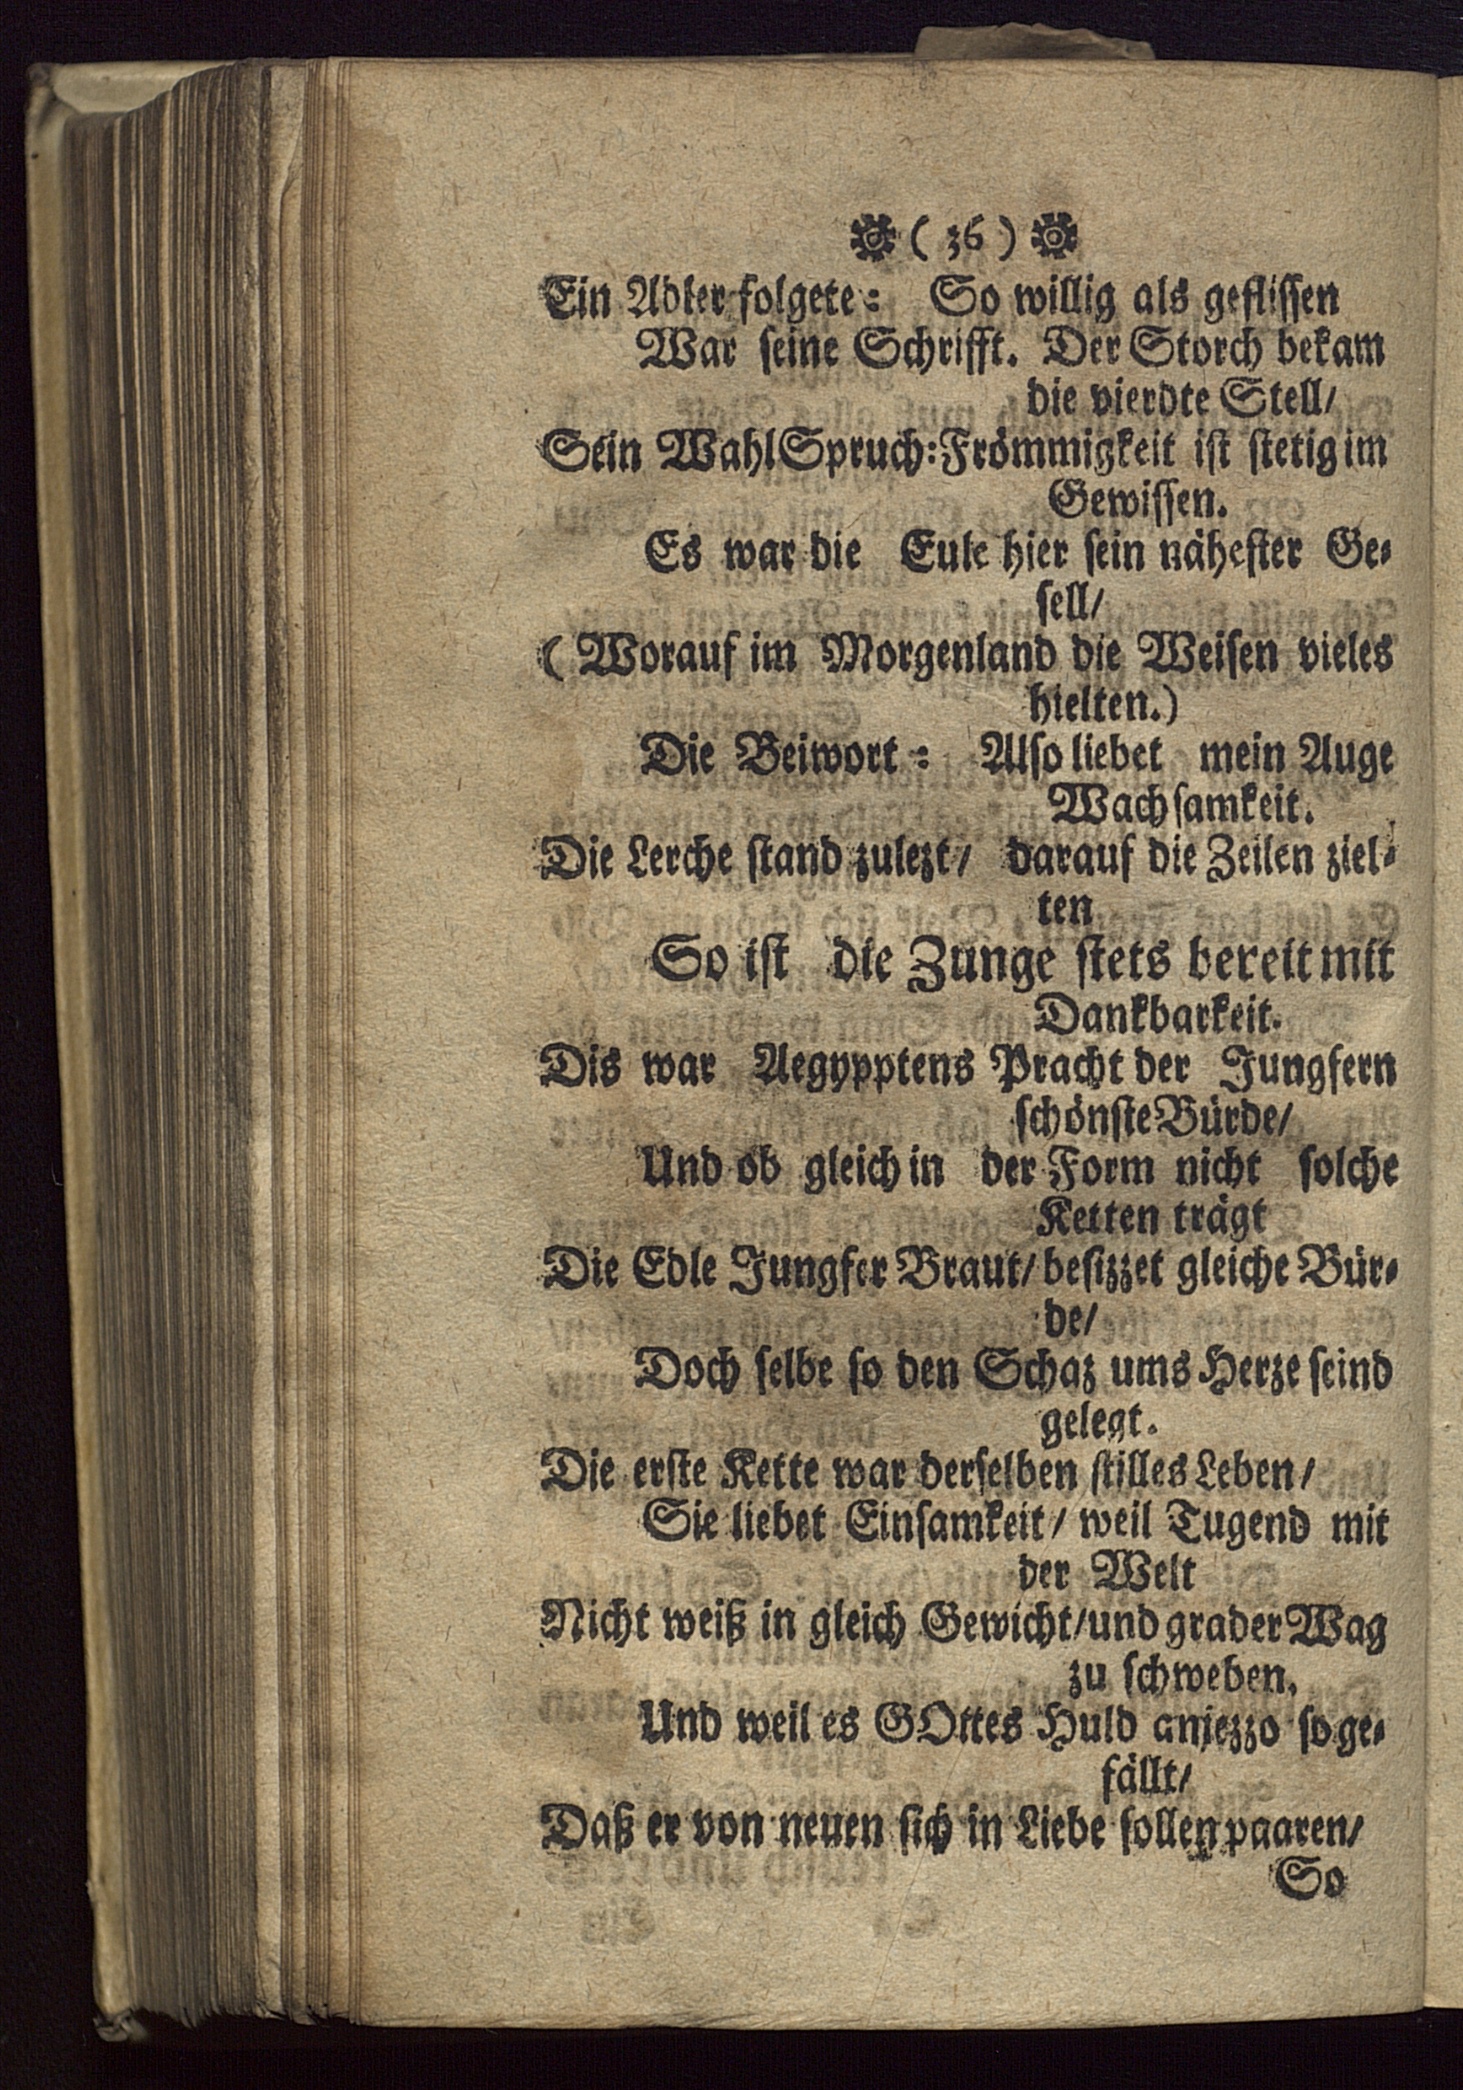 ( 36 )
Ein Adler folgete: So willig als geflissen
War seine Schrifft. Der Storch bekam
die vierdte Stell/
Sein WahlSpruch: Frömmigkeit ist stetig im
Gewissen.
Es war die Eule hier sein nähester Ge-
sell/
(Worauf im Morgenland die Weisen vieles
hielten.)
Die Beiwort: Also liebet mein Auge
Wachsamkeit.
Die Lerche stand zulezt/ darauf die Zeilen ziel-
ten
So ist die Zunge stets bereit mit
Dankbarkeit.
Dis war Aegypptens Pracht der Jungfern
schönste Bürde/
Und ob gleich in der Form nicht solche
Ketten trägt
Die Edle Jungfer Braut/ besizzet gleiche Bür-
de/
Doch selbe so den Schaz ums Herze seind
gelegt.
Die erste Kette war derselben stilles Leben/
Sie liebet Einsamkeit/ weil Tugend mit
der Welt
Nicht weiß in gleich Gewicht/ und grader Wag
zu schweben,
Und weil es GOttes Huld anjezzo so ge-
fällt/
Daß er von neuen sich in Liebe sollen paaren/
So